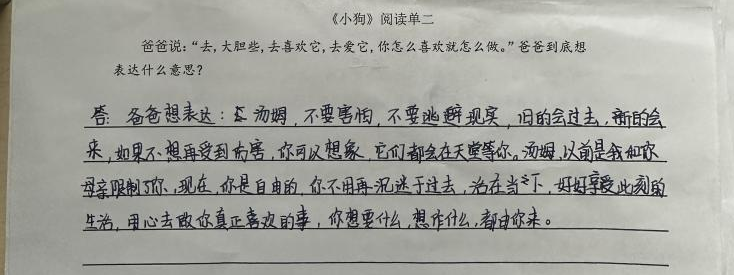 《小狗》阅读单二
爸爸说：“去，大胆些，去喜欢它，去爱它，你怎么喜欢就怎么做。”爸爸到底想
表达什么意思？
答：爸爸想表达：汤姆，不要害怕，不要逃避现实，旧的会过去，新的会
来，如果不想再受到伤害，你可以想象，它们都会在天堂等你。汤姆，以前是我和你
母亲限制了你，现在，你是自由的，你不用再沉迷于过去，活在当下，好好享受此刻的
生活，用心去做你真正喜欢的事，你想要什么，想作什么，都由你来。